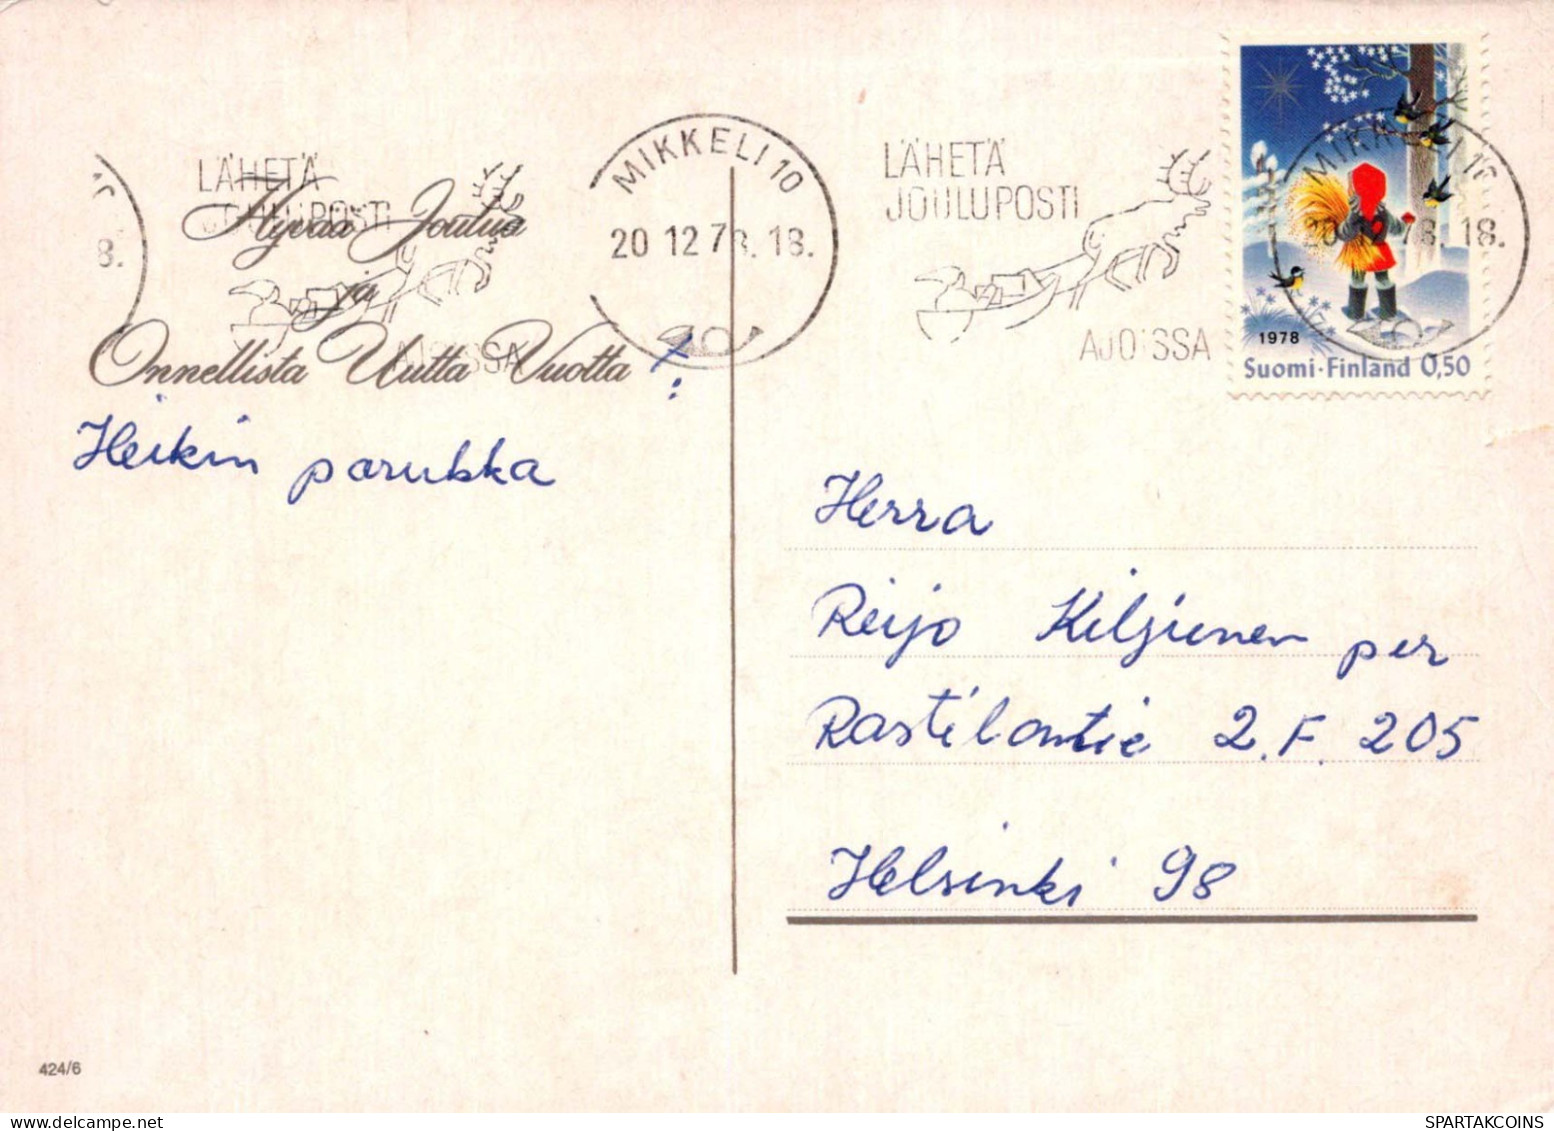 LÄHETÄ
JOULUPOSTI
AJOISSA
MIKKELI 10
20.12.78.18.
LÄHETÄ
JOULUPOSTI
AJOISSA
MIKKELI 10
20.12.78.18.
1978
Suomi·Finland 0,50
8.
Hyvää Joulua
ja
Onnellista Uutta Vuotta !:
Heikin porukka
Herra
Reijo Kiljunen per
Rastilantie 2.F. 205
Helsinki 98
424/6
SPARTAKCOINS